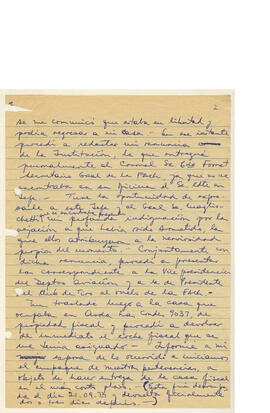 2
se me comunicó que estaba en libertad y
podía regresar a mi casa.- En ese instante
procedí a redactar mi renuncia
de la Institución, la que entregué
personalmente al Coronel Sr.
Secretario Gral de la FACH, ya que no se
encontraba en su oficina el Sr.
Jefe.- Tuve la oportunidad de expre-
sarle a este Jefe
mi profunda indignación por la
vejación a que había sido sometido, la
que ellos atribuyeron a la nerviosidad
propia del momento.- Conjuntamente con
dicha renuncia procedí a presentar
la correspondiente a la Vice presidencia
del Deptos Aviación y a la de Presidente
del Club de
Me traslade luego a la casa que
ocupaba en Avda. Las Condes 9037, de
propiedad fiscal y procedí a devolver
de inmediato el coche fiscal que se
me tenía asignado.- Informé a mi
esposa de lo ocurrido e iniciamos
el empaque de nuestras pertenencias, a
objeto de hacer entrega de la casa fiscal
en el más corto plazo.-
el día 21.09.73 y devuelta
dos o tres días después.-)